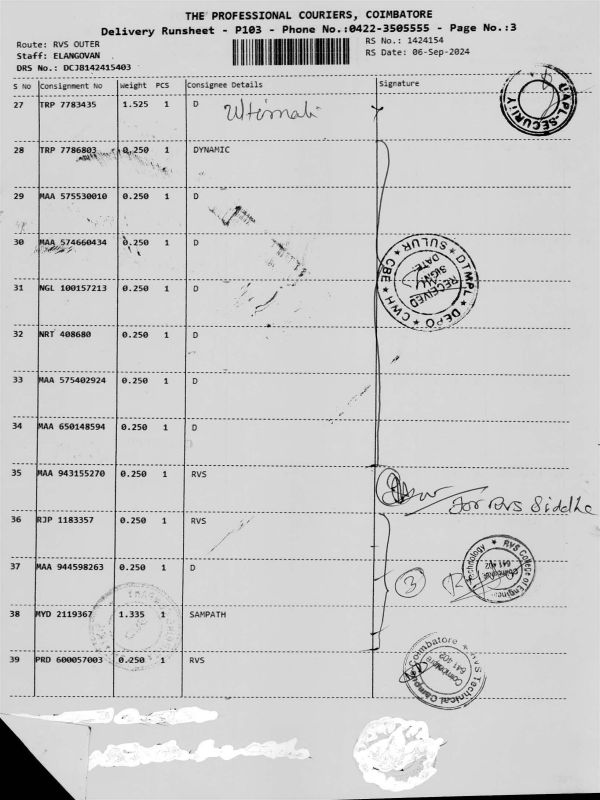 THE PROFESSIONAL COURIERS, COIMBATORE
Delivery Runsheet - P103 - Phone No.:0422-3505555 - Page No.:3
Route: RVS OUTER
RS No.: 1424154
Staff: ELANGOVAN
RS Date: 06-Sep-2024
DRS No.: DCJ8142415403
S No Consignment No Weight PCS Consignee Details Signature
27 TRP 7783435 1.525 1 D
UAPL-SECURITY
28 TRP 7786803 0.250 1 DYNAMIC
29 MAA 575530010 0.250 1 D
30 MAA 574660434 0.250 1 D
DTMPL ★ DEPO ★ CWH ★ CBE ★ SULUR
RECEIVED
SIGN
DATE
31 NGL 100157213 0.250 1 D
32 NRT 408680 0.250 1 D
33 MAA 575402924 0.250 1 D
34 MAA 650148594 0.250 1 D
35 MAA 943155270 0.250 1 RVS
for RVS Siddha
36 RJP 1183357 0.250 1 RVS
37 MAA 944598263 0.250 1 D
3
RVS College of Engineering Technology
641 402
38 MYD 2119367 1.335 1 SAMPATH
39 PRD 600057003 0.250 1 RVS
RVS Technical Campus Coimbatore
641 402